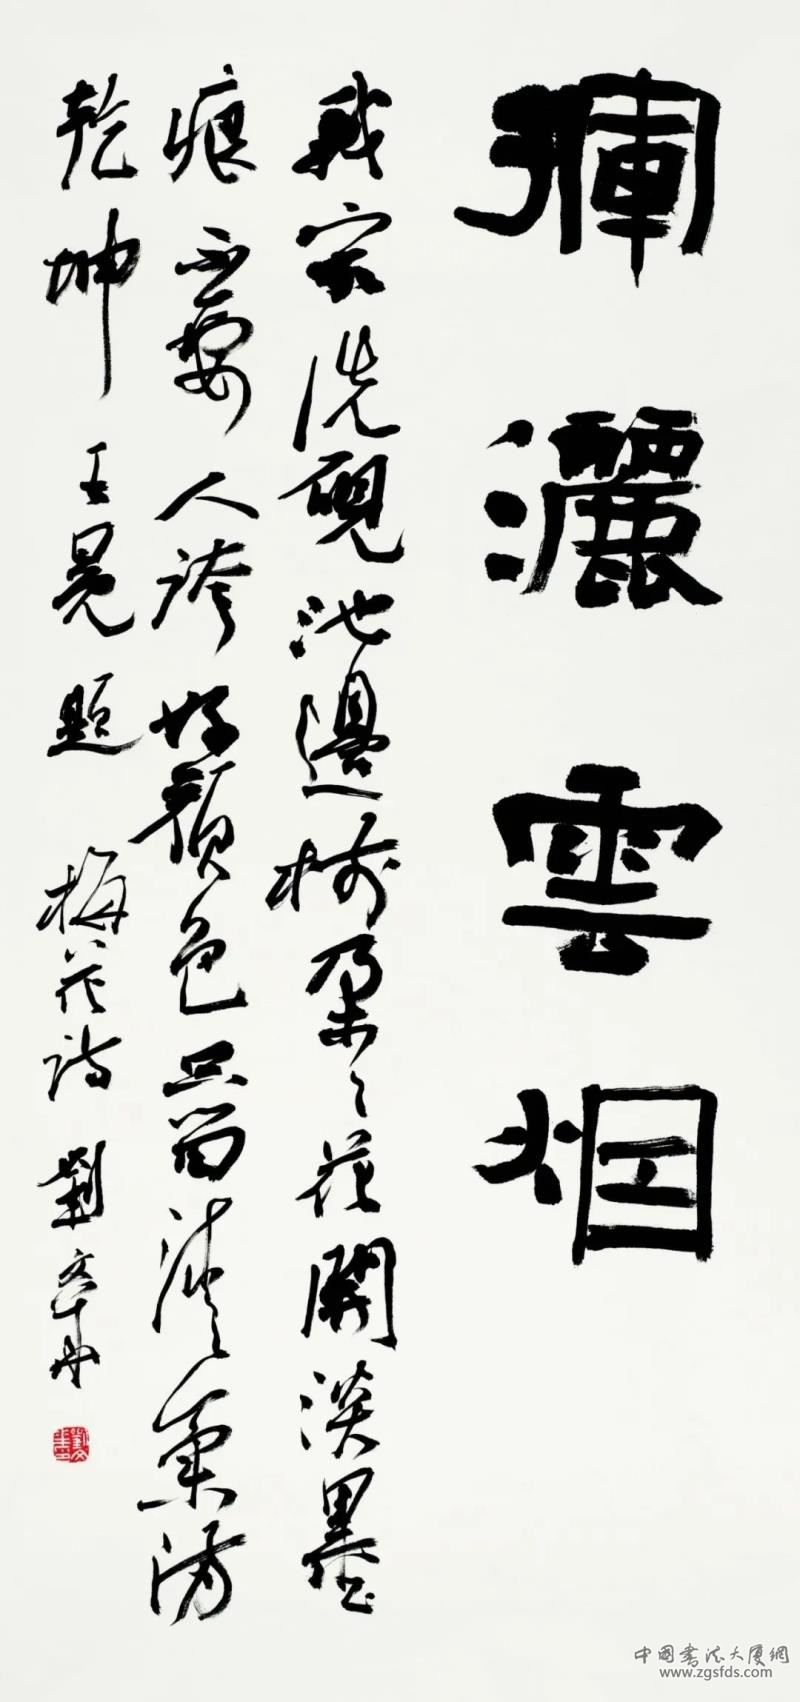 揮灑雲烟
我家洗硯池邊樹朵々花開淡墨
痕不要人誇好顏色只留清氣滿
乾坤 王冕題 梅花詩 劉文華
中國書法大厦網
www.zgsfds.com